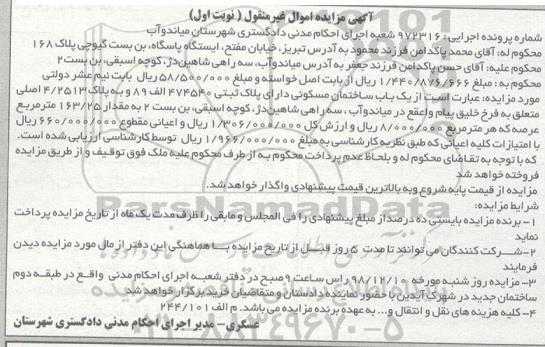 آگهی مزایده اموال غیرمنقول ( نوبت اول)
شماره پرونده اجرایی: ۹۷۲۳۱۶ شعبه اجرای احکام مدنی دادگستری شهرستان میاندوآب
محکوم له: آقای محمد پاکدامن فرزند محمود به آدرس تبریز، خیابان مفتح، ایستگاه پاسگاه، بن بست گیوچی پلاک ۱۶۸
محکوم علیه: آقای حسن پاکدامن فرزند جعفر به آدرس میاندوآب، سه راهی شاهین‌دژ، کوچه اسبقی، بن بست ۲
محکوم به: مبلغ ۱/۴۴۰/۸۷۶/۶۶۶ ریال از بابت اصل خواسته و مبلغ ۵۸/۵۰۰/۰۰۰ ریال بابت نیم عشر دولتی
مورد مزایده: عبارت است از یک باب ساختمان مسکونی دارای پلاک ثبتی ۴۷۴۵۴۰ الف ۸۹ و به پلاک ۴/۲۵۱۳ اصلی
متعلق به فرخ خلیق پیام واعقع در میاندوآب، سه راهی شاهین‌دژ، کوچه اسبقی، بن بست ۲ به مقدار ۱۶۳/۲۵ مترمربع
عرصه که هر مترمربع ۸/۰۰۰/۰۰۰ ریال و ارزش کل ۱/۳۰۶/۰۰۰/۰۰۰ ریال و اعیانی مقطوع ۶۶۰/۰۰۰/۰۰۰ ریال
با امتیازات کلیه اعیانی که طبق نظریه کارشناسی به مبلغ ۱/۹۶۶/۰۰۰/۰۰۰ ریال توسط کارشناسی ارزیابی شده است.
که با توجه به تقاضای محکوم له و بلحاظ عدم پرداخت محکوم به از طرف محکوم علیه ملک فوق توقیف و از طریق مزایده
فروخته خواهد شد
مزایده از قیمت پایه شروع و به بالاترین قیمت پیشنهادی واگذار خواهد شد.
شرایط مزایده:
۱- برنده مزایده بایستی ده درصد از مبلغ پیشنهادی را فی المجلس و مابقی را ظرف مدت یک ماه از تاریخ مزایده پرداخت
نماید
۲- شرکت کنندگان می توانند تا مدت ۵ روز قبل از تاریخ مزایده با هماهنگی این دفتر از مال مورد مزایده دیدن
فرمایند
۳- مزایده روز شنبه مورخه ۹۸/۱۲/۱۰ راس ساعت ۹ صبح در دفتر شعبه اجرای احکام مدنی واقع در طبقه دوم
ساختمان جدید در شهرک آیدین با حضور نماینده دادستان و متقاضیان خرید برگزار خواهد شد
۴- کلیه هزینه های نقل و انتقال و... به عهده برنده مزایده می باشد. م الف ۲۴۴/۱۰۱
عسکری- مدیر اجرای احکام مدنی دادگستری شهرستان
ParsNamadData
۰۲۱-۸۸۳۴۹۶۷۰-۵